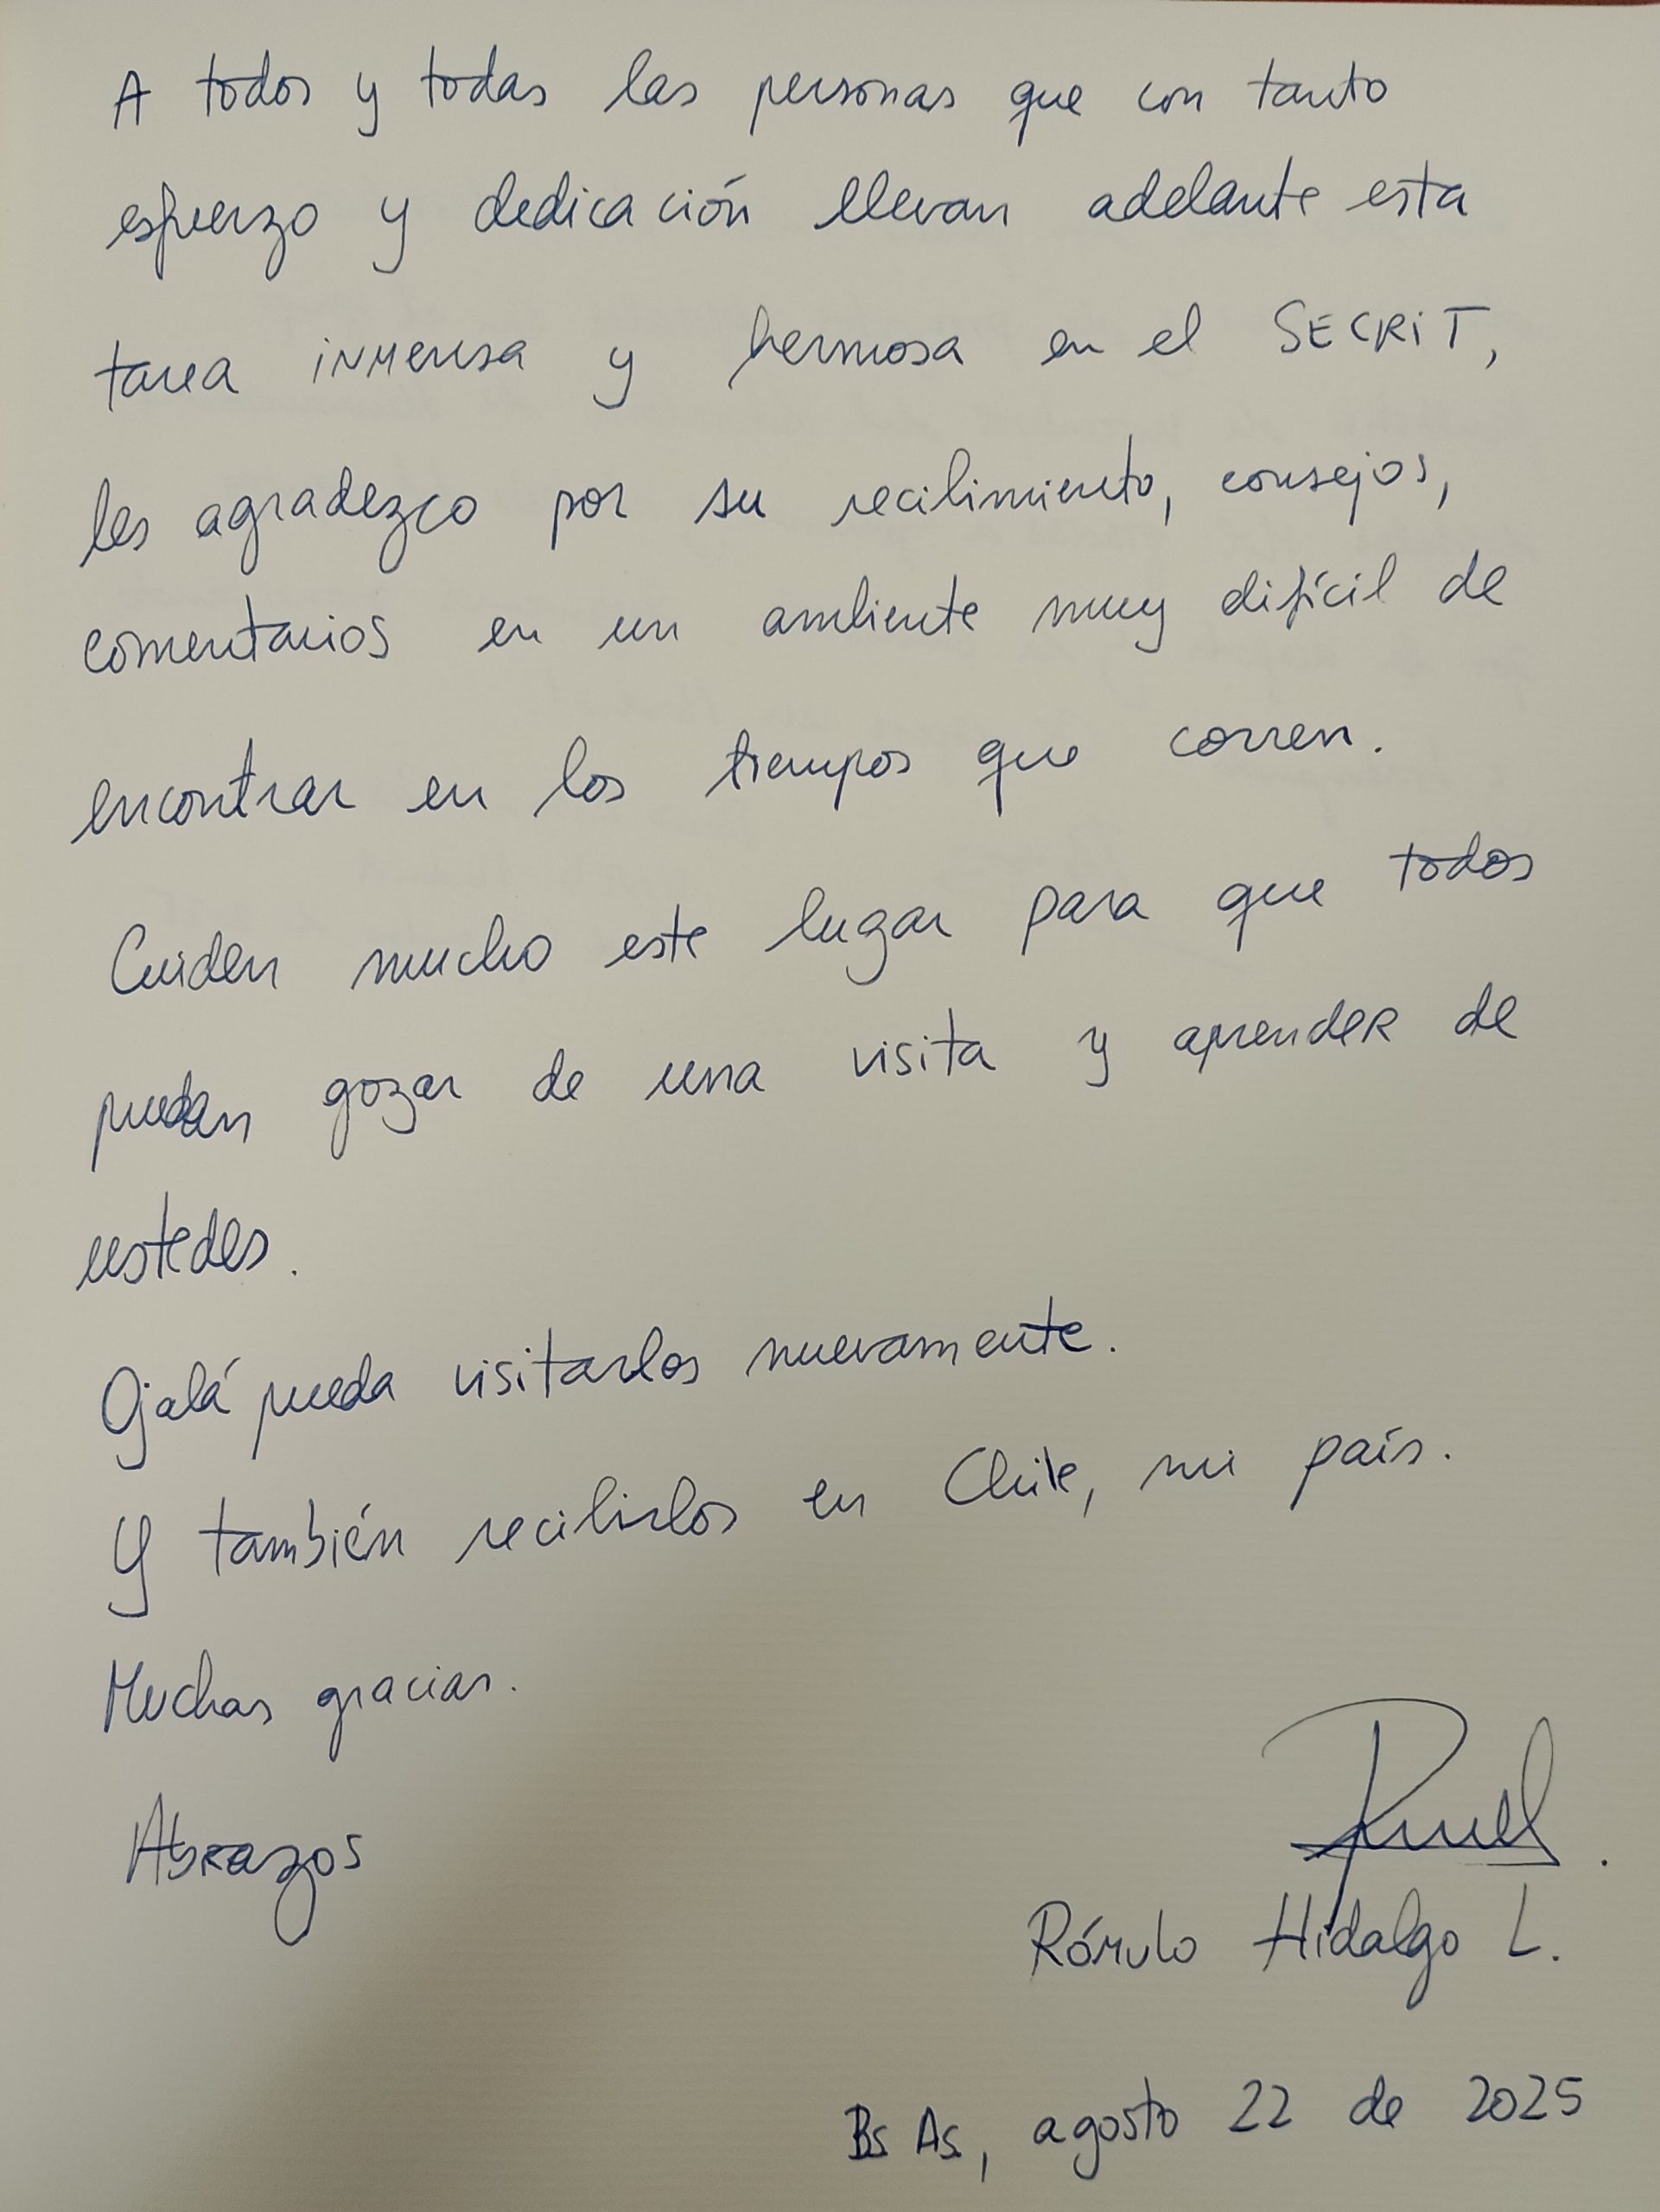 A todos y todas las personas que con tanto
esfuerzo y dedicación llevan adelante esta
tarea inmensa y hermosa en el SECRIT,
les agradezco por su recibimiento, consejos,
comentarios en un ambiente muy difícil de
encontrar en los tiempos que corren.
Cuiden mucho este lugar para que todos
puedan gozar de una visita y aprender de
ustedes.
Ojalá pueda visitarlos nuevamente.
Y también recibirlos en Chile, mi país.
Muchas gracias.
Abrazos
Rómulo Hidalgo L.
Bs As, agosto 22 de 2025